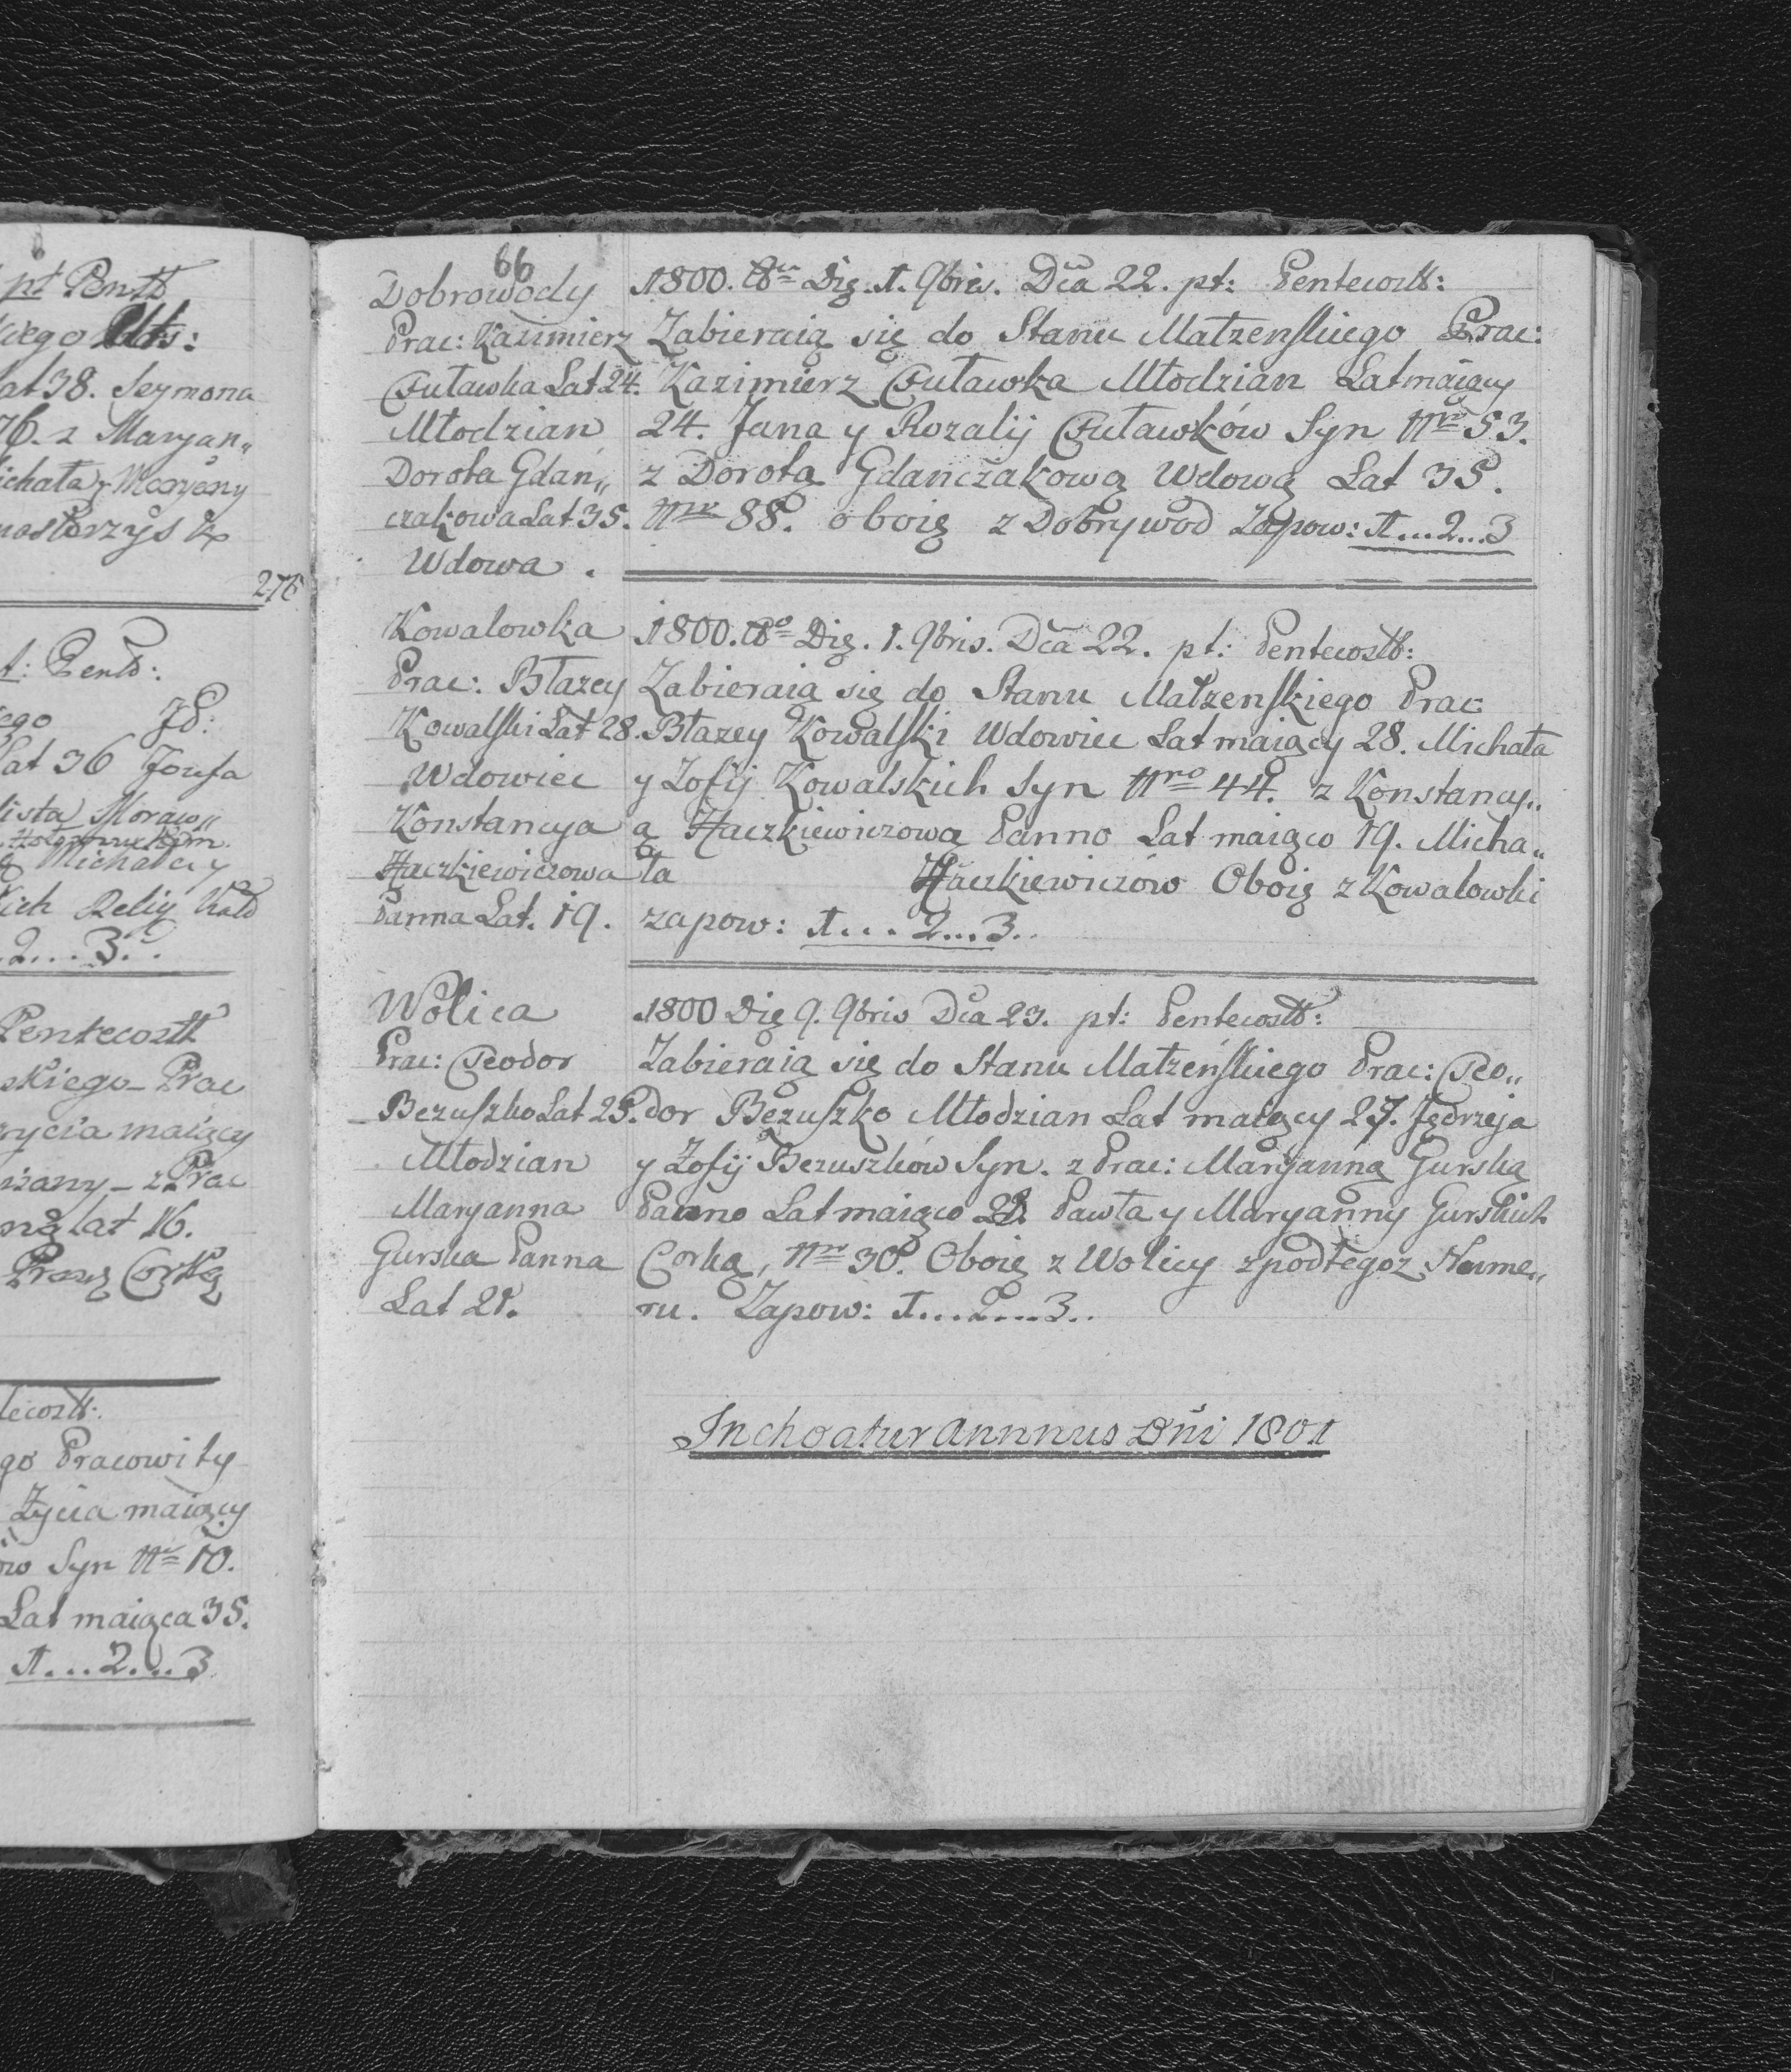 pt Pentt
kiego
Lat 38. Szymona
76. z Maryan„
ichała y Maryany
nasterzysk
276
t: Pentt:
ego
Lat 36 Jozefa
lista Moraw„
Michała y
kich Relig
2...3..
Pentecostt
skiego - Prac
życia maiący
- z Prac
ną lat 16.
Corką
tecostt:
go Pracowity
Życia maiący
ów Syn Nro 10.
Lat maiąca 35.
1...2...3
66
Dobrowody
Prac: Kazimierz
Cıuławka Lat 24.
Młodzian
Dorota Gdań„
czakowa Lat 35.
Wdowa.
1800. Die 1. 9bris. Dca 22. pt: Pentecostt:
Zabieraią się do Stanu Małzenskiego Prac:
Kazimierz Cıuławka Młodzian Lat maiący
24. Jana y Rozalij Cıuławków Syn Nro 53.
z Dorotą Gdańczakową Wdową Lat 35.
Nro 88. oboie z Dobrywod Zapow: 1...2...3
Kowalowka
Prac: Błazey
Kowalski Lat 28.
Wdowiec
Konstancya
Haczkiewiczowa
Panna Lat. 19.
1800. Die. 1. 9bris. Dca 22. pt: Pentecostt:
Zabieraią się do Stanu Małzenskiego Prac:
Błazey Kowalski Wdowiec Lat maiący 28. Michała
y Zofij Kowalskich Syn Nro 44. z Konstancy„
ą Haczkiewiczową Panno Lat maiąco 19. Micha„
ła Haczkiewiczów Oboie z Kowalowki
zapow: 1...2...3..
Wolica
Prac: Teodor
Bezuszko Lat 25.
Młodzian
Maryanna
Gurska Panna
Lat 21.
1800 Die 9. 9bris Dca 23. pt: Pentecostt:
Zabieraią się do Stanu Małzeńskiego Prac: Teo„
dor Bezuszko Młodzian Lat maiący 27. Jędrzeja
y Zofij Bezuszków Syn. z Prac: Maryanną Gurską
Panno Lat maiąco Pawła y Maryanny Gurskich
Corką, Nro 30. Oboie z Wolicy zpodtegoz Nume„
ru. Zapow: 1...2...3..
Inchoatur Annnus Dñi 1801